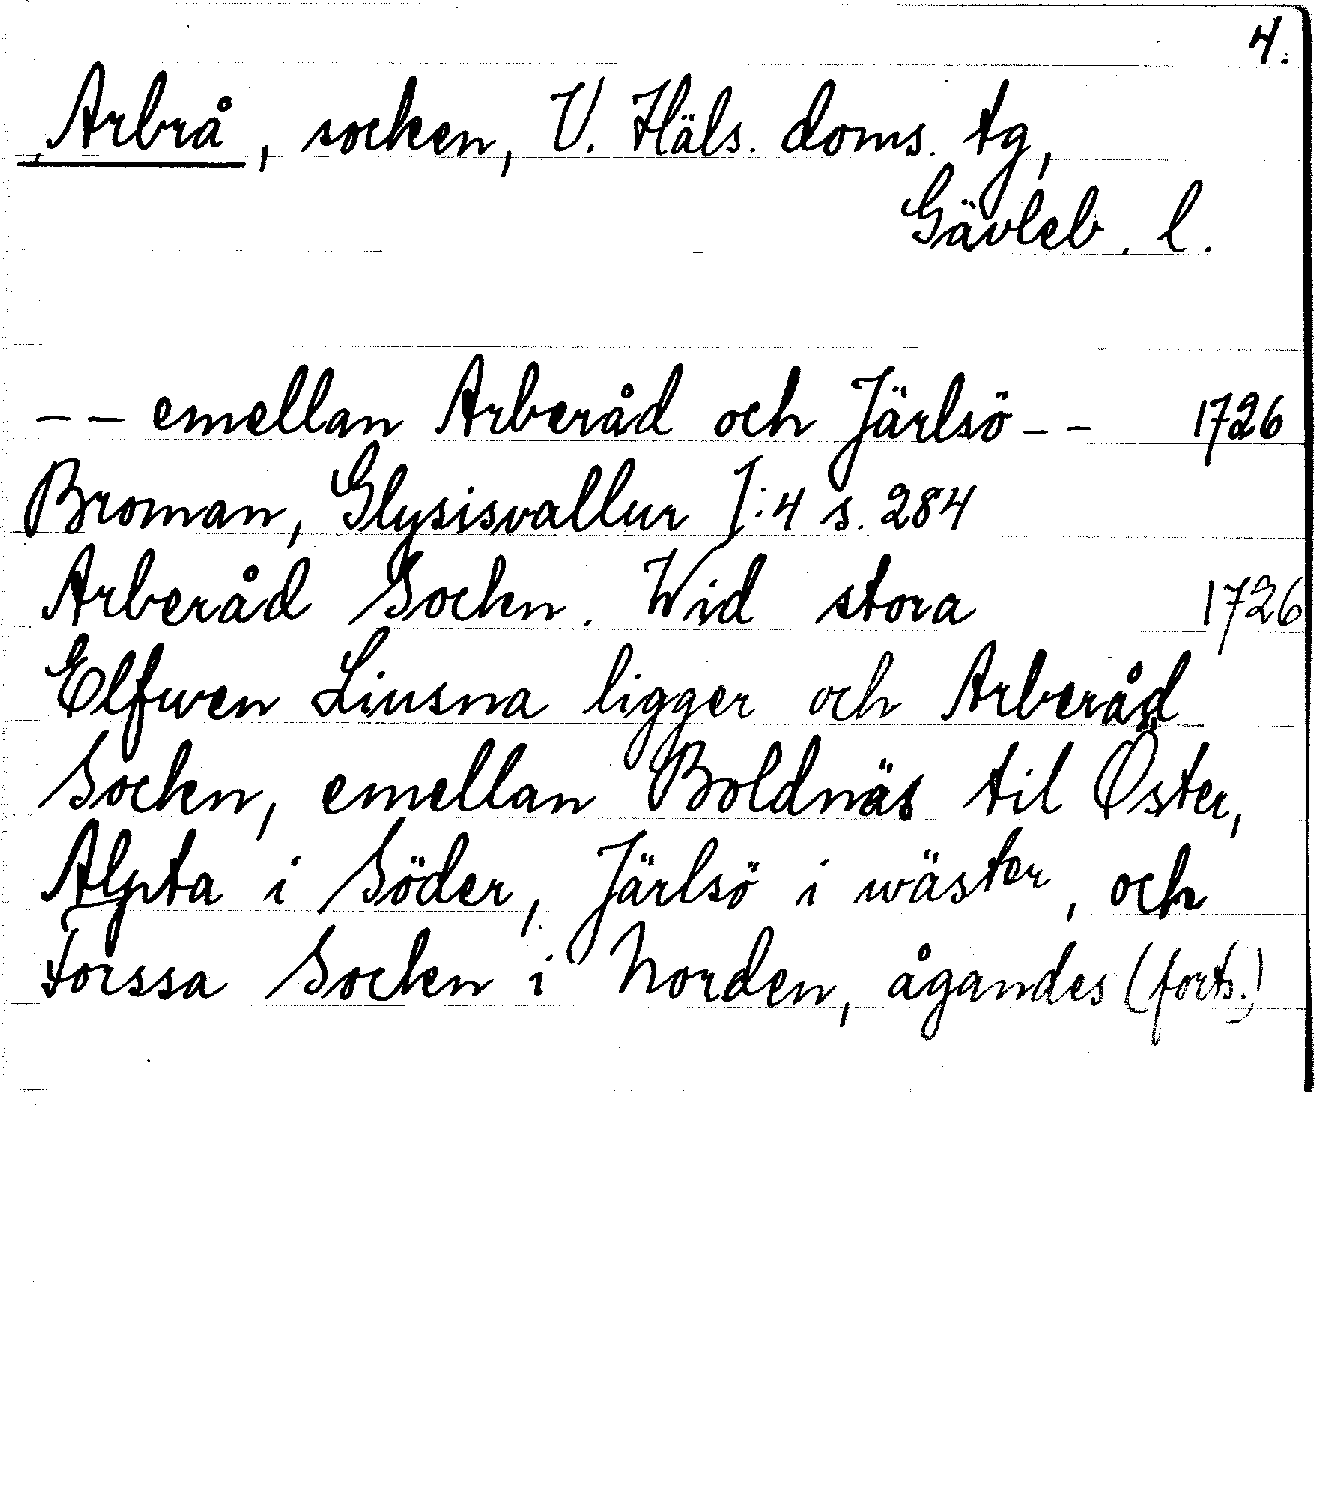 4.
Arbrå, socken, V. Häls. doms. tg,
Gävleb. l.
-- emellan Arberåd och Järlsö -- 1726
Broman, Glysisvallur I:4 s. 284
Arberåd Sockn. Wid stora 1726
Elfwen Liusna ligger och Arberåd
Sockn, emellan Boldnäs til Öster,
Alpta i Söder, Järlsö i wäster, och
Forssa Socken i Norden, ägandes (forts.)